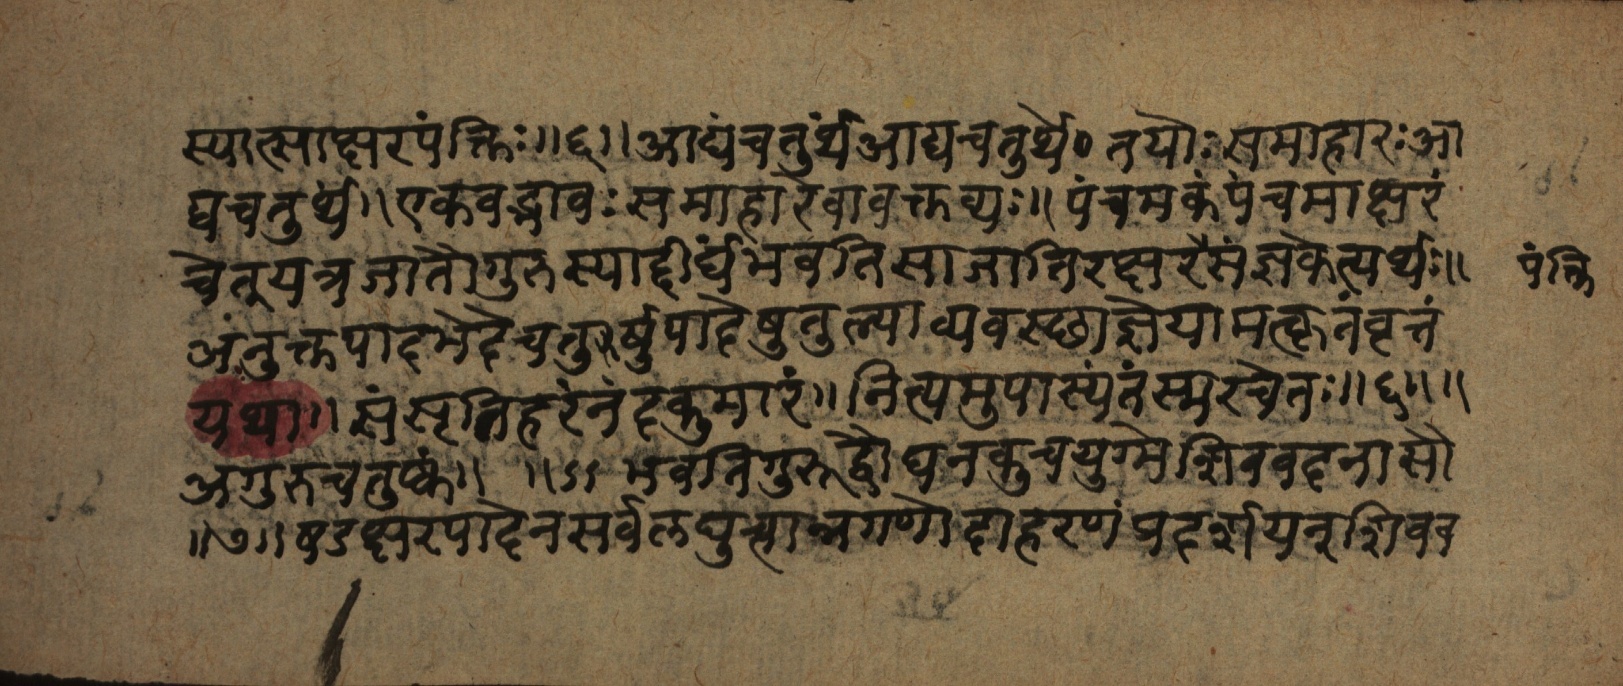 स्यात्साक्षरपंक्तिः॥६॥आद्यंचतुर्थंआद्यचतुर्थं० तयोः समाहारः आ
द्यचतुर्थं॥एकवद्भावः समाहारेवावक्तव्यः॥पंचमकंपंचमाक्षरं
चेत्यत्रजातौगुरुस्याद्दीर्घंभवतिसाजातिरक्षरैसंज्ञकेत्यर्थः॥ पंक्ति
अंनुक्तपादभेदेचतुर्षुपादेषुतुल्याव्यवस्छाज्ञेयामत्कृतंवृत्तं
यथा॥संसृतिहरंनंदकुमारं॥नित्यमुपास्यंतंस्मरचेतः॥६॥॥
अगुरुचतुष्कं॥ ॥ऽऽ भवतिगुरुद्वौघनकुचयुग्मेशशिवदनासौ
॥७॥षडक्षरपादेनसर्वलघुत्मान्नगणोदाहरणंप्रदर्शयन्शशिव